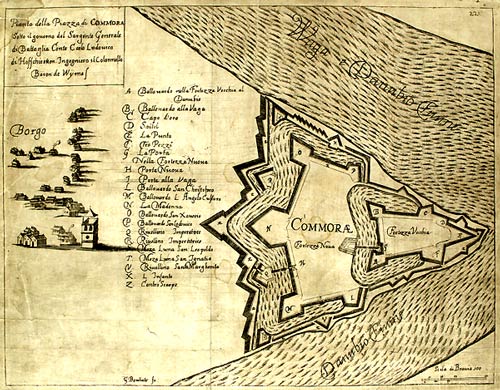 Pianta della Piazza di COMMORA
Sotto il governo del Sargente Generale
di Battaglia Conte Carlo Ludovico
di Hoffchirchen Ingegniero il Colonnello
Baron de Wymes
Borgo
A Balouardo nella Fortezza Vecchia al
Danubio
B Balouardo alla Vaga
C Capo d'oro
D
E La Punta
F Tre Pezzi
G La Ponta
Nella Fortezza Nuova
H Porta Nuova
I Porta alla Vaga
L Balouardo San Christoforo
M Balouardo L Angelo Custode
N La Madonna
O Balouardo San
P Balouardo San Lodovico
Q Rivellino Imperatore
R Rivellino Imperatrice
S Meza Luna San Leopoldo
T Meza Luna San Ignatio
V Rivellino Santa Margherita
X L Infante
Z Contra Scarpe
Danubio Fiume
COMMORÆ
Fortezza Nova
Fortezza Vechia
N
H
M
Danubio Fiume
Scala di Braccia 500